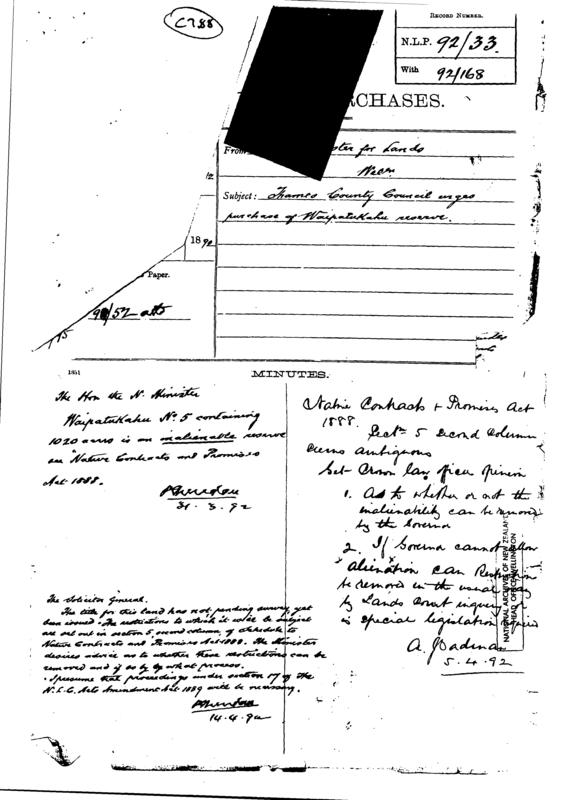 C788
RECORD NUMBER.
N.L.P. 92/33.
With 92/168
CHASES.
From for Lands
Subject: Thames County Council urges
purchase of Waipatukahu reserve.
1892
Paper.
MINUTES.
The Hon the N. Minister
Waipatukahu No. 5 containing
1020 acres is an inalienable reserve
see "Native Contracts and Promises
Act 1888.
31.3.92
Native Contracts & Promises Act
1888.
Sectn 5 second column
seems ambiguous
Get Crown law officer opinion
1. As to whether or not the
inalienability can be removed
by the Governor
2. If Governor cannot allow
alienation can
be removed in the usual way
by Lands Court inquiry or
is special legislation
5.4.92
The Solicitor General.
The title for this land has not, pending survey, yet
been issued. The restrictions to which it will be subject
are set out in section 5, second column, of Schedule to
Native Contracts and Promises Act 1888. The Minister
desires advice as to whether these restrictions can be
removed and if so by what process.
I presume that proceedings under section 17 of the
N.L.C. Acts Amendment Act 1889 will be necessary.
14.4.92
NATIONAL ARCHIVES OF NEW ZEALAND
HEAD OFFICE WELLINGTON